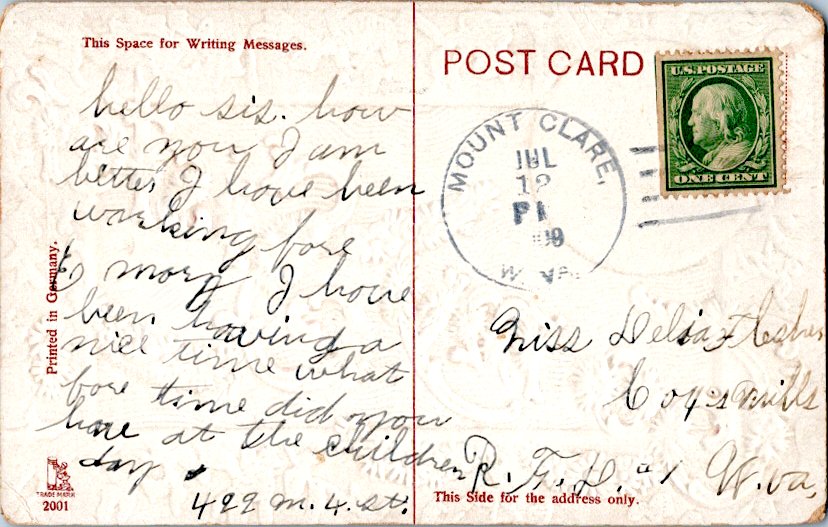 This Space for Writing Messages.
hello sis. how
are you I am
better I have been
working fore
mory I have
been having a
nice time what
fore time did you
have at the children
day.
422 m. 4. st.
Printed in Germany.
TRADE MARK
2001
POST CARD
U.S. POSTAGE
ONE CENT
MOUNT CLARE,
JUL
12
W. VA.
Miss Delia Flesher
Coys mills
R. F. D. #1 W. va,
This Side for the address only.